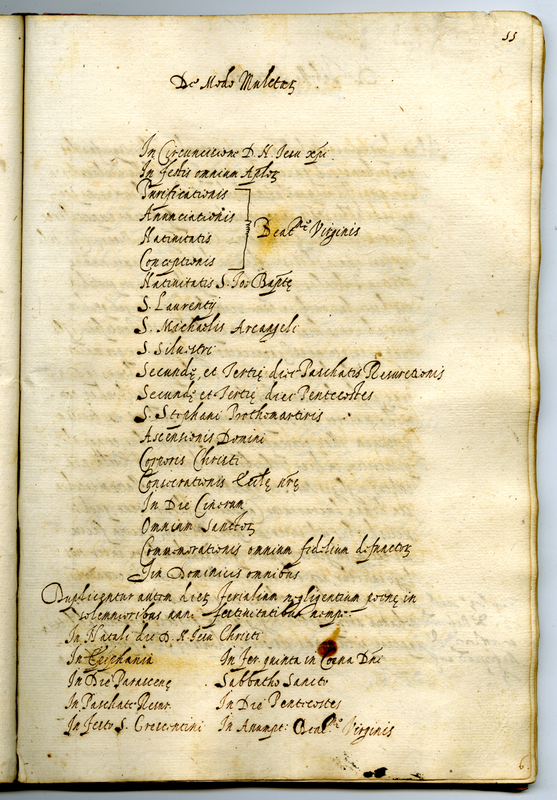 55
De Modo Mulctaꝝ
In Circuncitione D. N. Iesu xp̃i
In festis omnium Aplõꝝ
Purificationis
Annunciationis
Natiuitatis
Conceptionis
Beat.me Virginis
Natiuitatis S. Io: Bap̃tę
S. Laurentij
S. Michaelis Arcangeli
S. Siluestri
Secundę, et Tertię diei Paschatis Resuretionis
Secundę et Tertię diei Pentecostes
S. Stephani Prothomartiris
Ascensionis Domini
Corporis Christi
Consecrationis Eccl̃ę nr̃ę
In Die Cinerum
Omnium Sanctoꝝ
Commemorationis omnium fidelium defunctoꝝ
In Dominicis omnibus
Duplicentur autem dictę ferialium negligentium poenę in
solemnioribus festiuitatibus nempe
In Natali die D. N. Iesu Christi
In Epiphania
In fer. quinta in Coena Dn̄i
In Die Parasceuę
Sabbatho Sancto
In Paschate Resur.
In Die Pentecostes
In festo S. Crescentini
In Assumpt: Beat.me Virginis
6